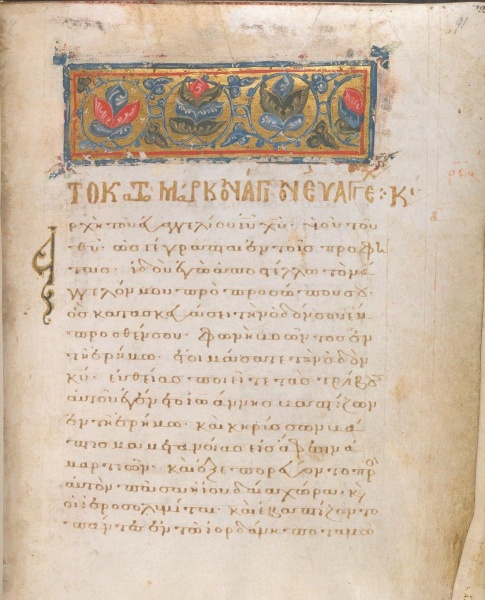 91
ΤΟ ΚΑΤ ΜΑΡΚΟΝ ΑΓΙΟΝ ΕΥΑΓΓΕ : Κυ
Ἀρχὴ τοῦ εὐαγγελίου ιυ χυ· υἱοῦ τοῦ
θυ· ὡς γέγραπται ἐν τοῖς προφή
ταις· ἰδοὺ ἐγὼ ἀποστέλλω τὸν ἄ
γγελόν μου πρὸ προσώπου σου·
ὃς κατασκευάσει τὴν ὁδόν σου ἔμ
προσθέν σου· φωνὴ βοῶντος ἐν
τῇ ἐρήμω· ἑτοιμάσατε τὴν ὁδὸν
κυ· εὐθείας ποιεῖτε τὰς τρίβους
αὐτοῦ· ἐγένετο ἰωάννης βαπτίζων
ἐν τῇ ἐρήμω· καὶ κηρύσσων βά
πτισμα μετανοίας εἰς ἄφεσιν ἁ
μαρτιῶν· καὶ ἐξεπορεύετο πρὸ
αὐτὸν πᾶσα ἡ ἰουδαία χώρα· κὶ
οἱ ἱεροσολυμῖται· καὶ ἐβαπτίζοντο
πάντες ἐν τῶ ἰορδάνη ποταμῶ